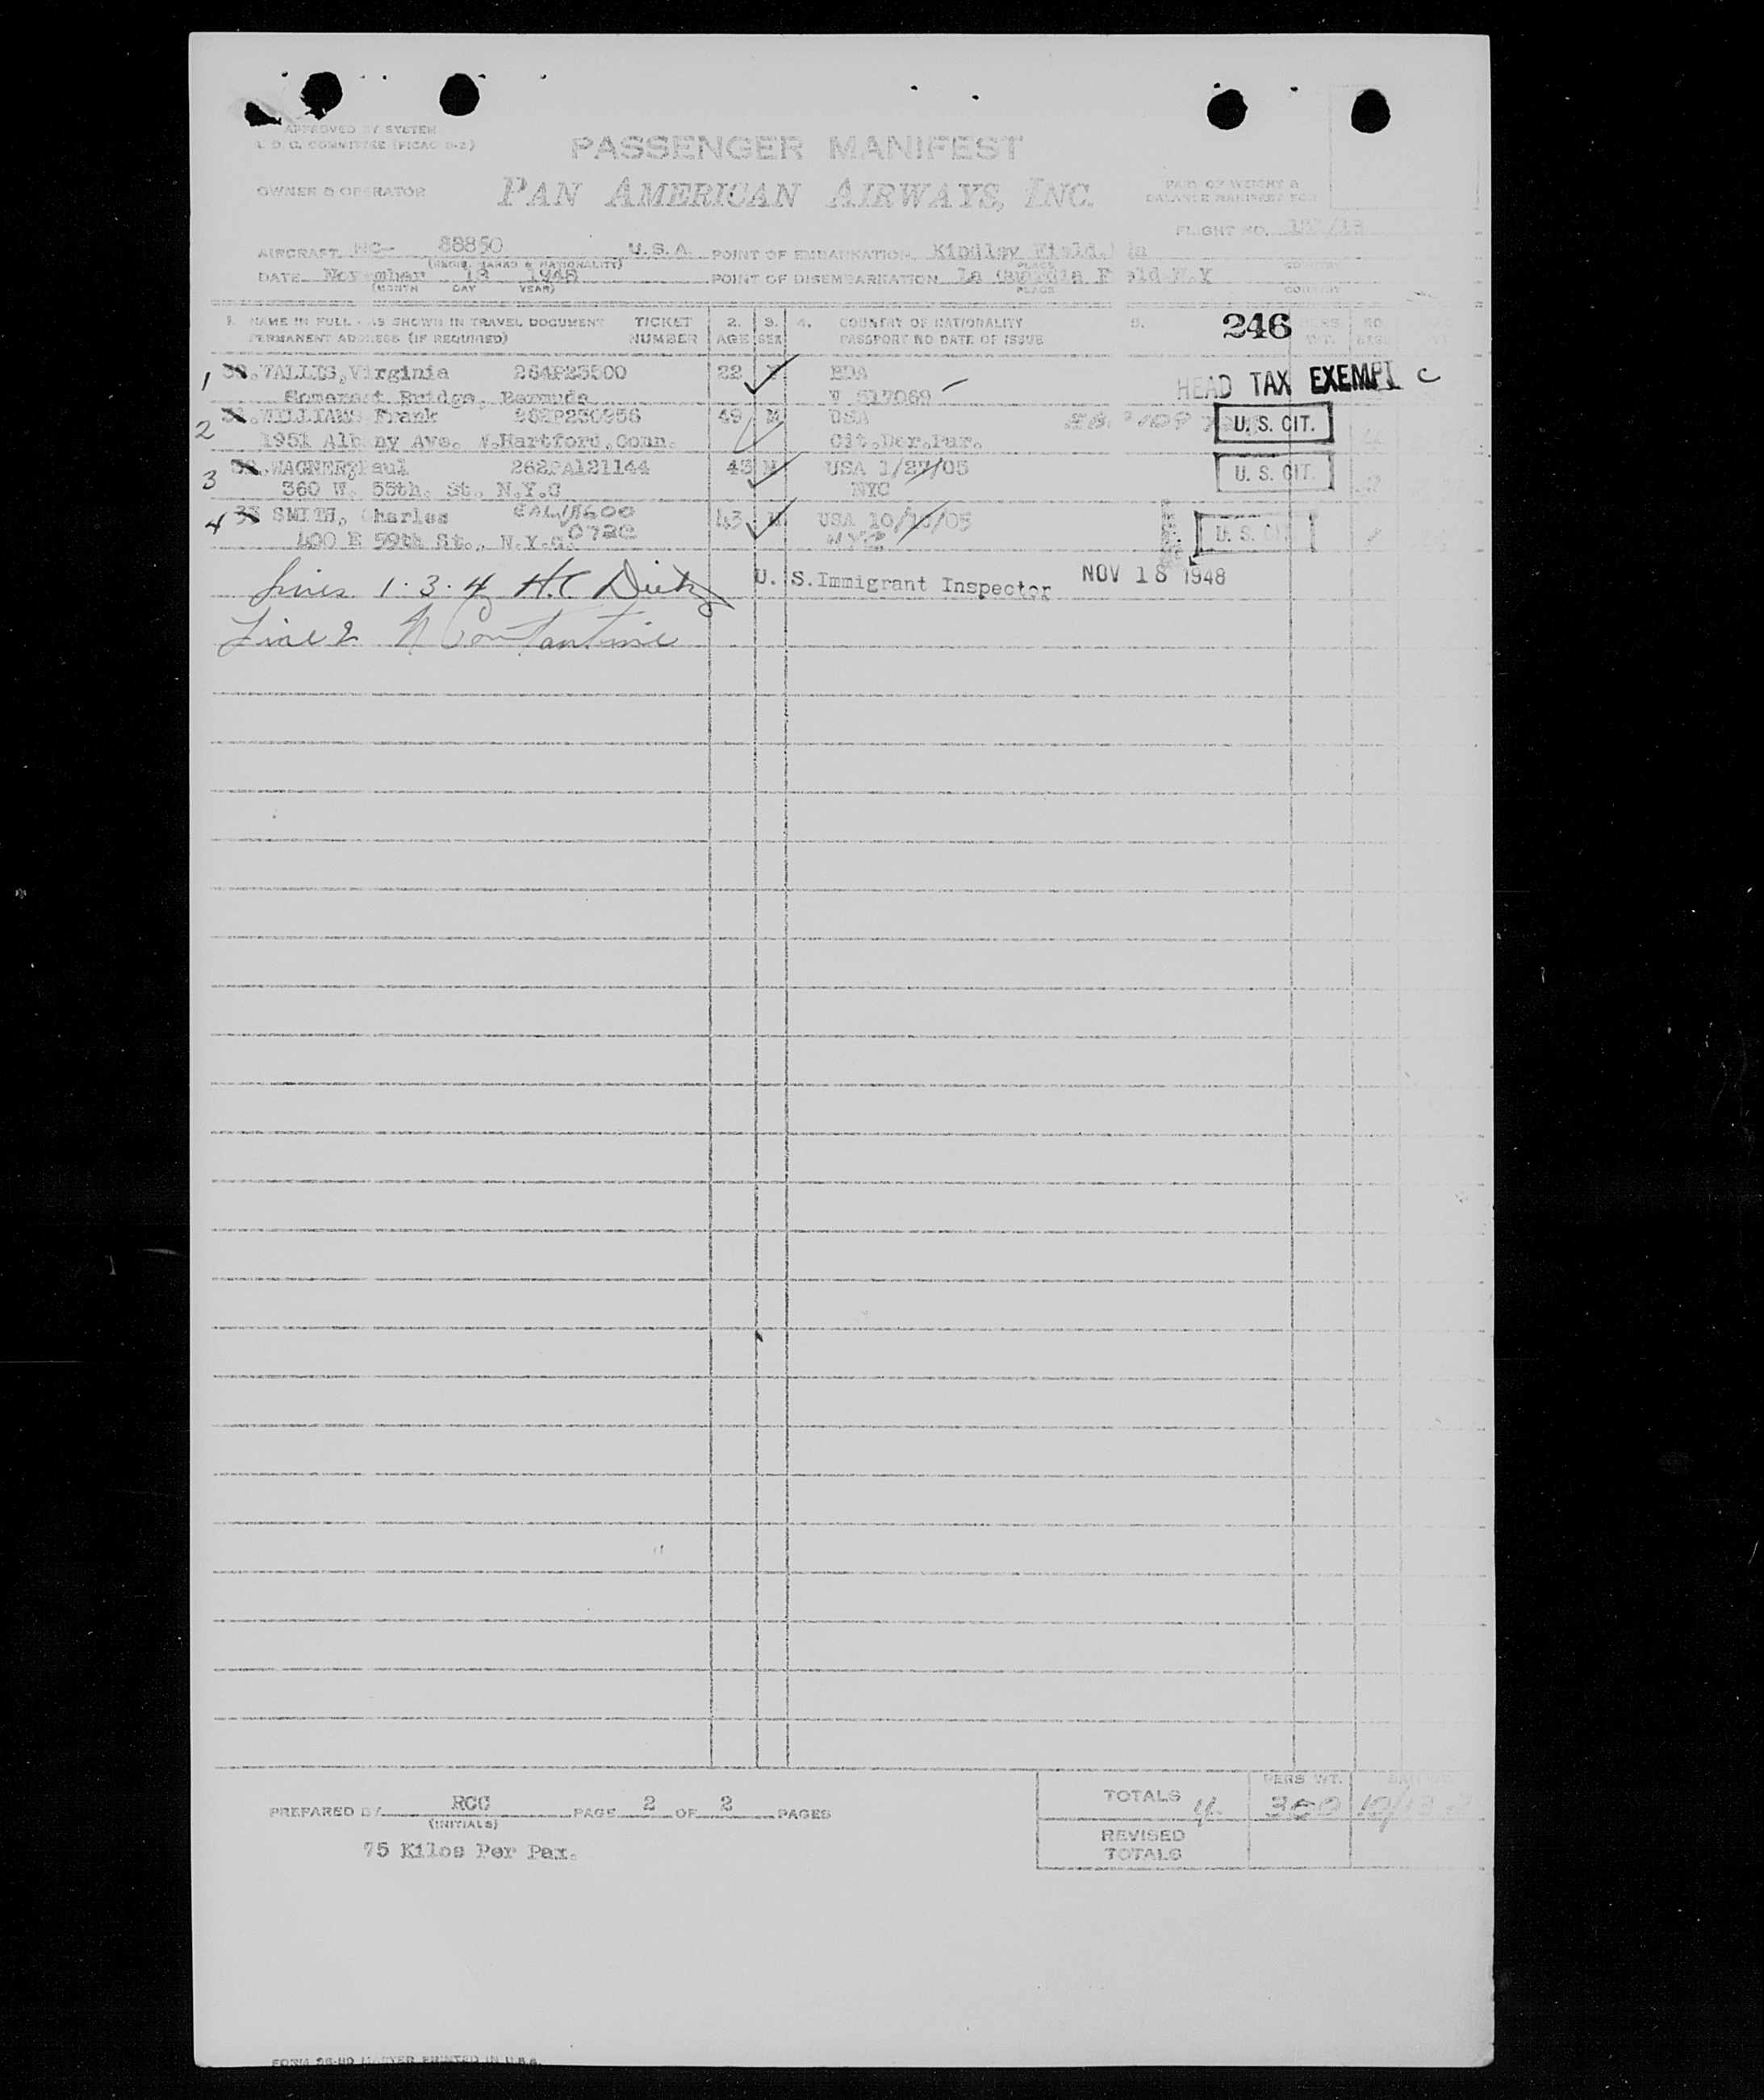 APPROVED BY SYSTEM
COMMITTEE
PASSENGER MANIFEST
OWNER & OPERATOR
PAN AMERICAN AIRWAYS, INC.
PART OF WEIGHT &
BALANCE MANIFEST FOR
FLIGHT NO.
AIRCRAFT NC- 88850 U.S.A. POINT OF EMBARKATION Kindley Field,
(REGIS. MARKS & NATIONALITY) PLACE COUNTRY
DATE November 18 1948 POINT OF DISEMBARKATION La Guardia Field N.Y
(MONTH DAY YEAR) PLACE COUNTRY
1. NAME IN FULL - AS SHOWN IN TRAVEL DOCUMENT TICKET 2. 3. 4. COUNTRY OF NATIONALITY 5. 246
PERMANENT ADDRESS (IF REQUIRED) NUMBER AGE SEX PASSPORT NO DATE OF ISSUE WT.
1 Virginia 264P25500 22 F BDA HEAD TAX EXEMPT C
Somerset Bridge, Bermuda
2 WILLIAMS Frank 49 M USA U. S. CIT.
1951 Albany Ave. W.Hartford,Conn. Cit.Der.Par.
3 WAGNER, Paul 262PA121144 43 M USA 1/27/05 U. S. CIT.
360 W. 55th. St. N.Y.C NYC
4 SMITH, Charles 43 M USA 10/16/05 U. S. CIT.
400 E 59th St., N.Y.C. 072C NYC
Lines 1·3·4 H.C Dietz U. S. Immigrant Inspector NOV 18 1948
Line 2 N Constantine
PREPARED BY RCG PAGE 2 OF 2 PAGES
(INITIALS)
75 Kilos Per Pax.
PERS WT.
TOTALS 4 300
REVISED
TOTALS
PRINTED IN U.S.A.